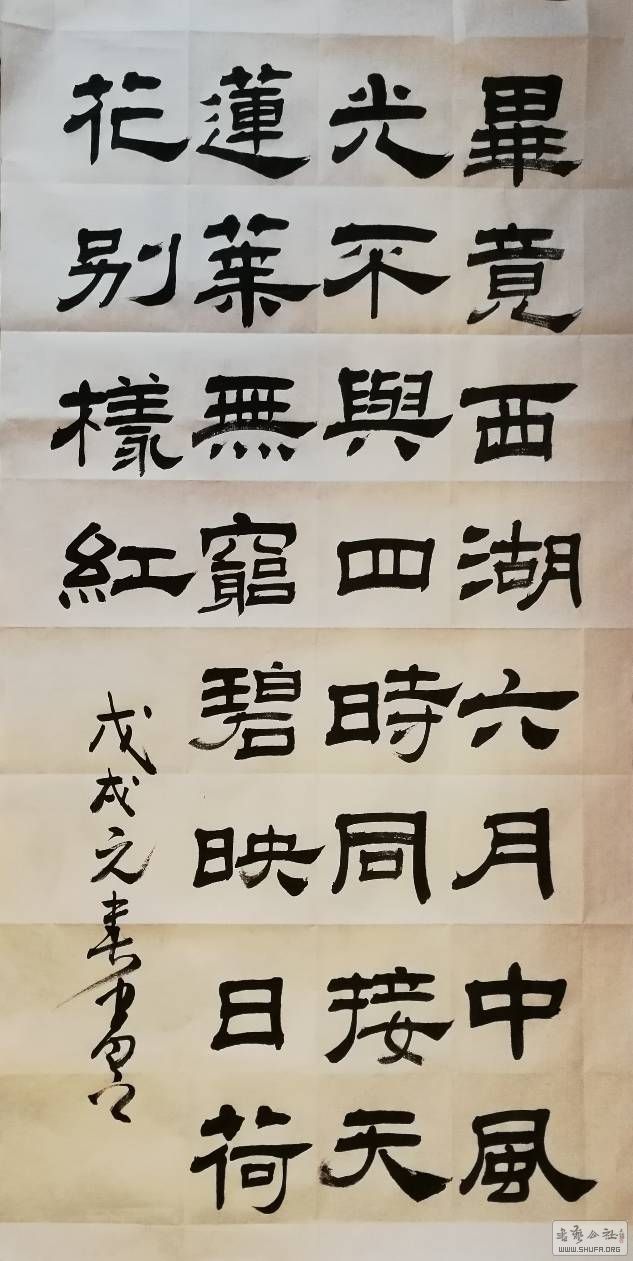 畢竟西湖六月中風
光不與四時同接天
蓮葉無窮碧映日荷
花別樣紅
戊戌元春
书艺公社
WWW.SHUFA.ORG